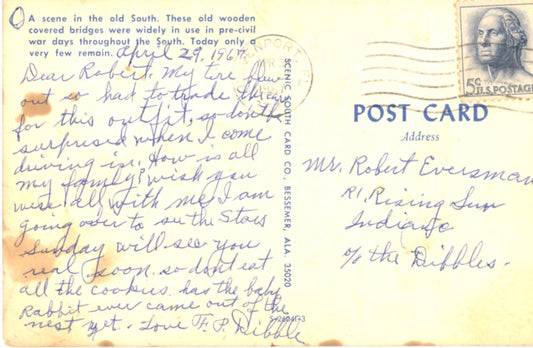 A scene in the old South. These old wooden
covered bridges were widely in use in pre-civil
war days throughout the South. Today only a
very few remain.
April 29, 1967
Dear Robert. My tire blew
out so had to trade the car
for this outfit, so don't be
surprised when I come
driving in. How is all
my family? wish you
were all with me, I am
going over to see the Stars
Sunday will see you
real soon. so don't eat
all the cookies. has the baby
Rabbit ever came out of the
nest yet. Love F. P. Dibble
SCENIC SOUTH CARD CO., BESSEMER, ALA. 35020
5¢
U.S. POSTAGE
POST CARD
Address
Mr. Robert Eversman
R1, Rising Sun
Indiana
c/o the Dibbles.